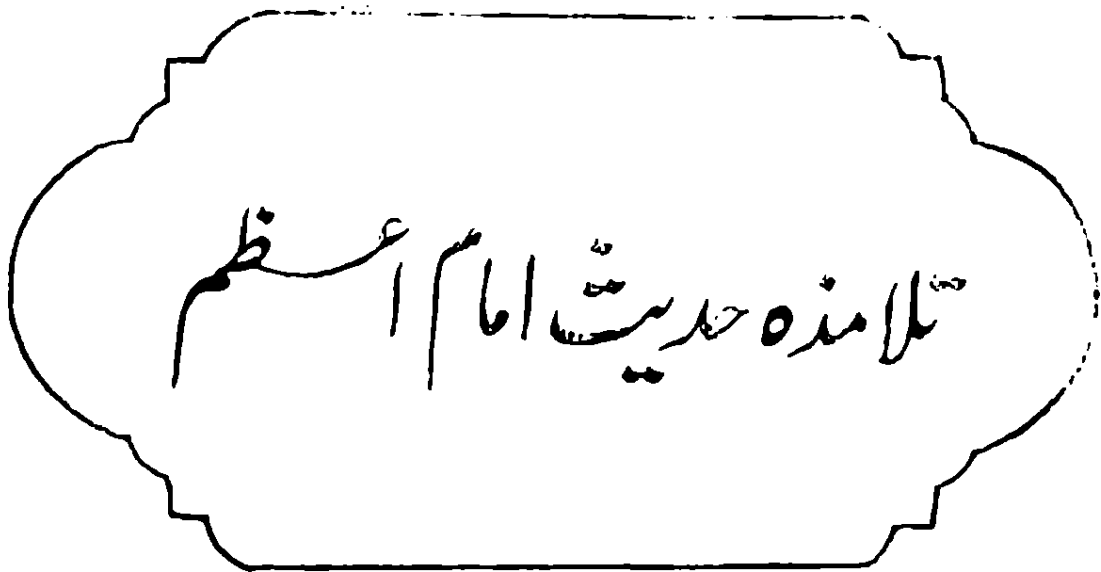 تلامذہ حدیث امام اعظم